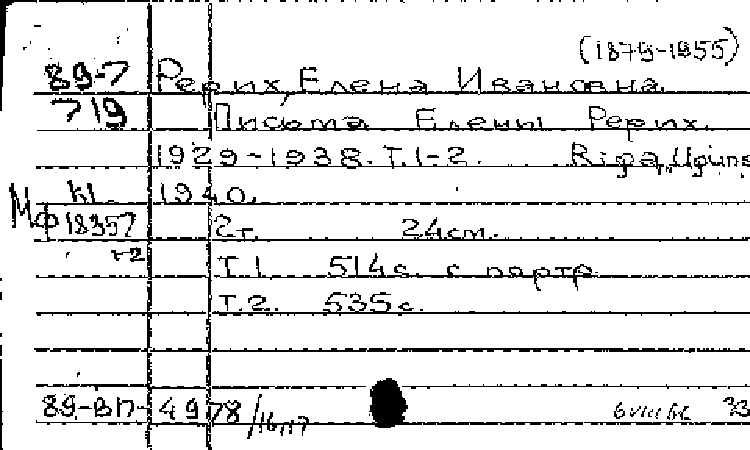 (1879-1955)
89-7 Рерих, Елена Ивановна.
719 Письма Елены Рерих.
1929-1938. Т.1-2. Riga, Uguns
1940.
Мф
18357 2т. 24см.
т2
Т.1 514с. с портр
Т.2. 535с.
89-ВП- 4978/16,17